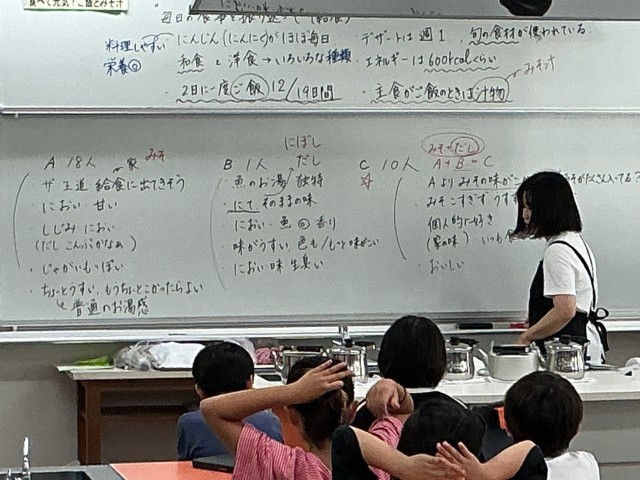 食べて元気!ご飯とみそ汁
料理しやすい
栄養◎
にんじん(にんにく)がほぼ毎日
和食 と 洋食→いろいろな種類
・2日に一度 ご飯 12/19日間
デザートは週1、旬の食材が使われている
エネルギーは600kcalくらい
・主食がご飯のときは汁物
みそ汁
A 18人
家
みそ
ザ 王道 給食に出てきそう
・におい 甘い
・しじみ におい
(だし こんぶかなぁ)
・じゃがいもっぽい
・ちょっとうすい、もうちょとこかったらよい
普通のお湯感
にぼし
だし
B 1人
・魚のお湯 独特
・にて そのままの味
・におい→魚◎香り
・味がうすい、色も/もっと味がこい
・におい味 生臭い
みそ+だし
A+B=C
C 10人
・Aよりみその味が
みそがたくさん入ってる?
・みそこすぎず うす
個人的に好き
(家の味)
・おいしい